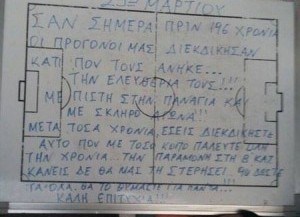 25Η ΜΑΡΤΙΟΥ
ΣΑΝ ΣΗΜΕΡΑ ΠΡΙΝ 196 ΧΡΟΝΙΑ
ΟΙ ΠΡΟΓΟΝΟΙ ΜΑΣ ΔΙΕΚΔΙΚΗΣΑΝ
ΚΑΤΙ ΠΟΥ ΤΟΥΣ ΑΝΗΚΕ...
ΤΗΝ ΕΛΕΥΘΕΡΙΑ ΤΟΥΣ!!!
ΜΕ ΠΙΣΤΗ ΣΤΗΝ ΠΑΝΑΓΙΑ ΚΑΙ
ΜΕ ΣΚΛΗΡΟ ΑΓΩΝΑ!!
ΜΕΤΑ ΤΟΣΑ ΧΡΟΝΙΑ, ΕΣΕΙΣ ΔΙΕΚΔΙΚΗΣΤΕ
ΑΥΤΟ ΠΟΥ ΜΕ ΤΟΣΟ ΚΟΠΟ ΠΑΛΕΥΤΕ ΟΛΗ
ΤΗΝ ΧΡΟΝΙΑ... ΤΗΝ ΠΑΡΑΜΟΝΗ ΣΤΗ Β ΚΑΤ
ΚΑΝΕΙΣ ΔΕ ΘΑ ΜΑΣ ΤΗ ΣΤΕΡΗΣΕΙ. ΔΩΣΤΕ
ΤΑ ΟΛΑ. ΘΑ ΤΟ ΘΥΜΑΣΤΕ ΓΙΑ ΠΑΝΤΑ...
ΚΑΛΗ ΕΠΙΤΥΧΙΑ!!!